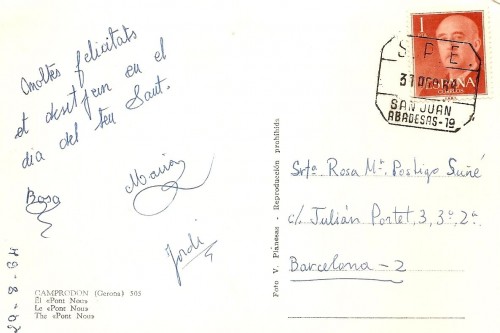 Moltes felicitats
et desitjem en el
dia del teu Sant.
Rosa
Maria
Jordi
CAMPRODON (Gerona) 505
El «Pont Nou»
Le «Pont Nou»
The «Pont Nou»
Foto V. Planesas - Reproducción prohibida
1
ESPAÑA
CORREOS
S.P.E.
SAN JUAN
ABADESAS-19
Srtª Rosa Mª Postigo Suñé
c/. Julián Portet, 3, 3º, 2ª.
Barcelona - 2